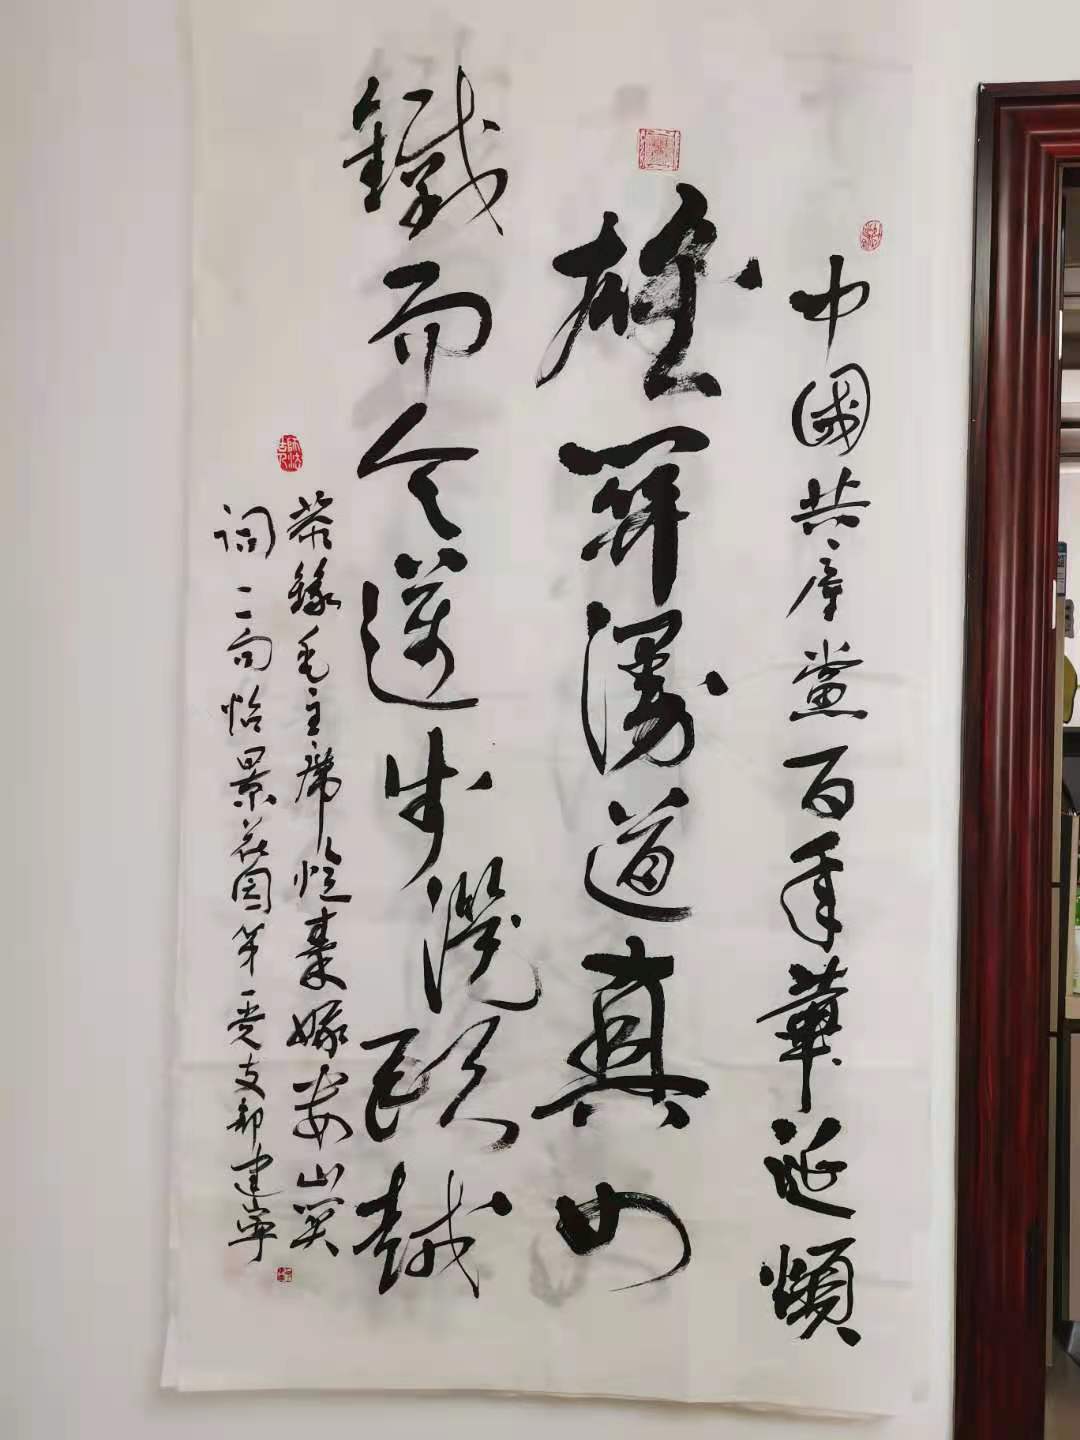 中國共產黨百年華诞頌
雄關漫道真如
鐵而今邁步從頭越
恭録毛主席憶秦娥娄山关
词二句怡景花园第一党支部建寧